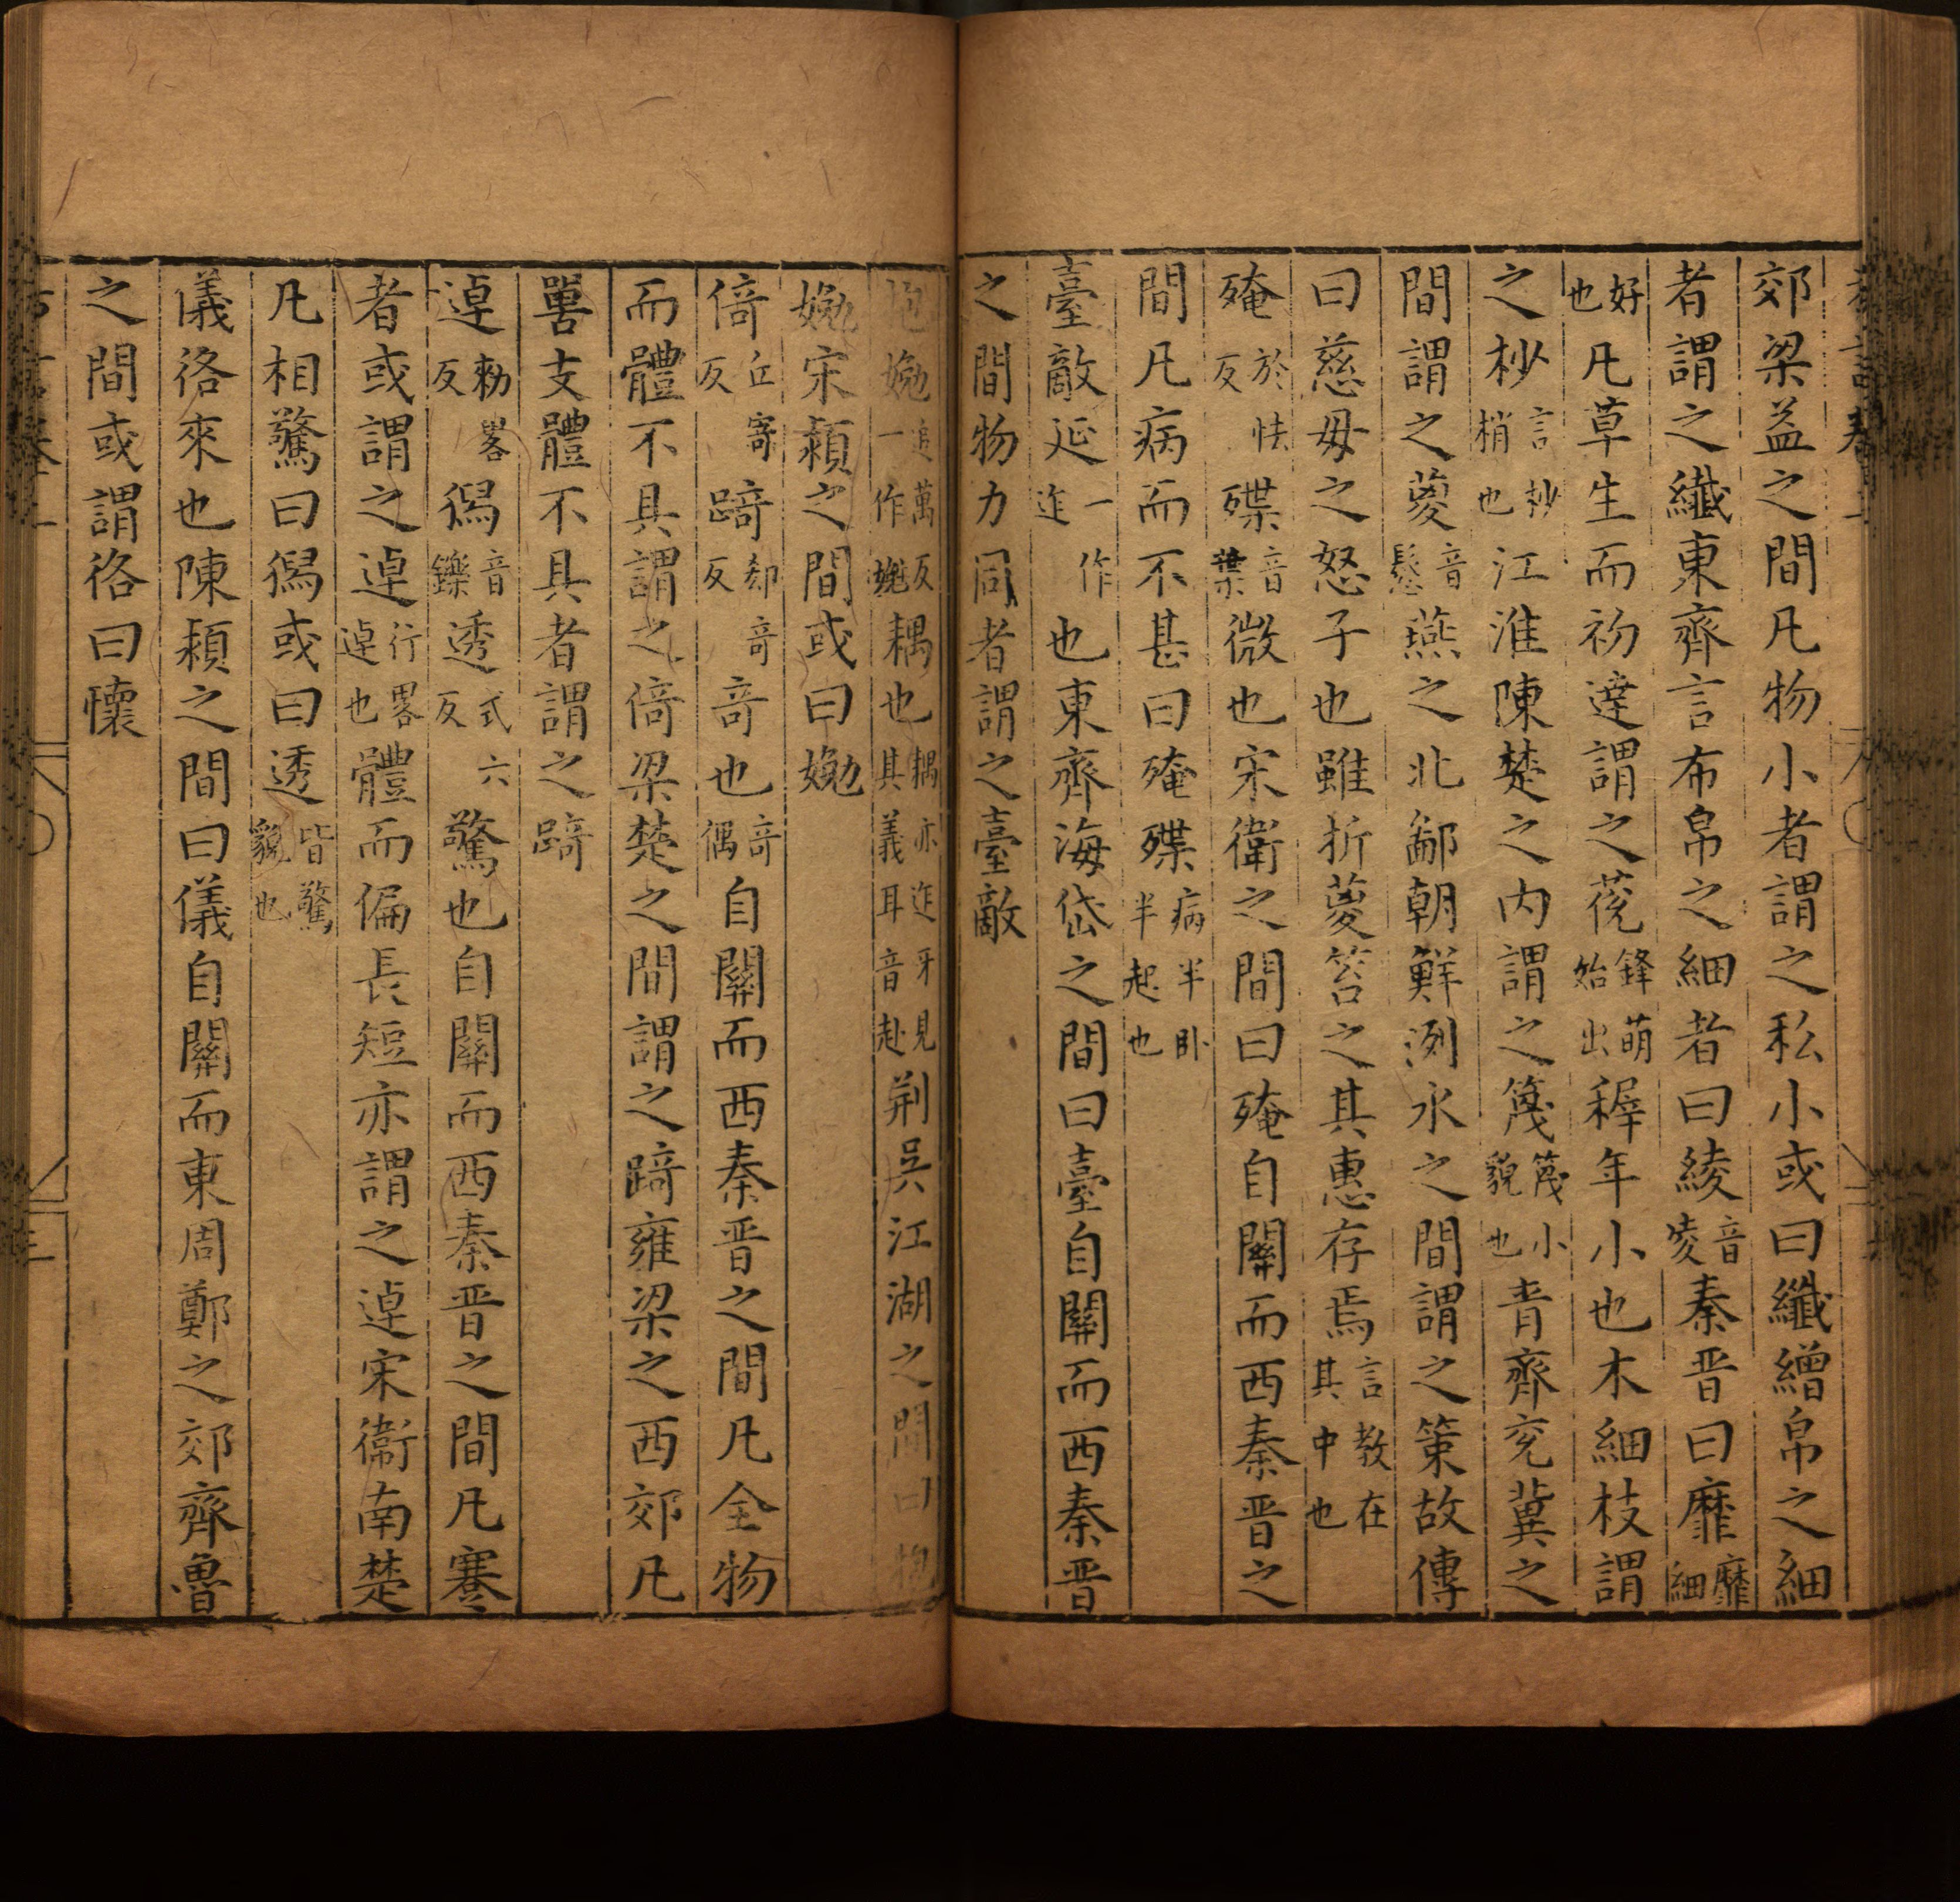 郊梁益之間凡物小者謂之私小或曰纖繒帛之細
者謂之纖東齊言布帛之細者曰綾音凌秦晋曰靡靡細
好也凡草生而初達謂之䓲鋒萌始出稺年小也木細枝謂
之杪言杪梢也江淮陳楚之内謂之篾篾小貌也青齊兖冀之
間謂之葼音鬆燕之北鄙朝鮮洌水之間謂之策故傳
曰慈母之怒子也雖折葼笞之其惠存焉言教在其中也
殗於怯反殜音葉微也宋衛之間曰殗自關而西秦晋之
間凡病而不甚曰殗殜病半卧半起也
臺敵延一作迮也東齊海岱之間曰臺自關而西秦晋
之間物力同者謂之臺敵
抱嬎追萬反一作嬎耦也耦亦迮牙見其義耳音赴荆吴江湖之間曰抱
嬎宋潁之間或曰嬎
倚丘寄反踦却奇反奇也奇偶自關而西秦晋之間凡全物
而體不具謂之倚梁楚之間謂之踦雍梁之西郊凡
嘼支體不具者謂之踦
逴勑略反獡音鑠透式六反驚也自關而西秦晋之間凡蹇
者或謂之逴行略逴也體而偏長短亦謂之逴宋衛南楚
凡相驚曰獡或曰透皆驚貌也
儀徦來也陳潁之間曰儀自關而東周鄭之郊齊魯
之間或謂徦曰懷